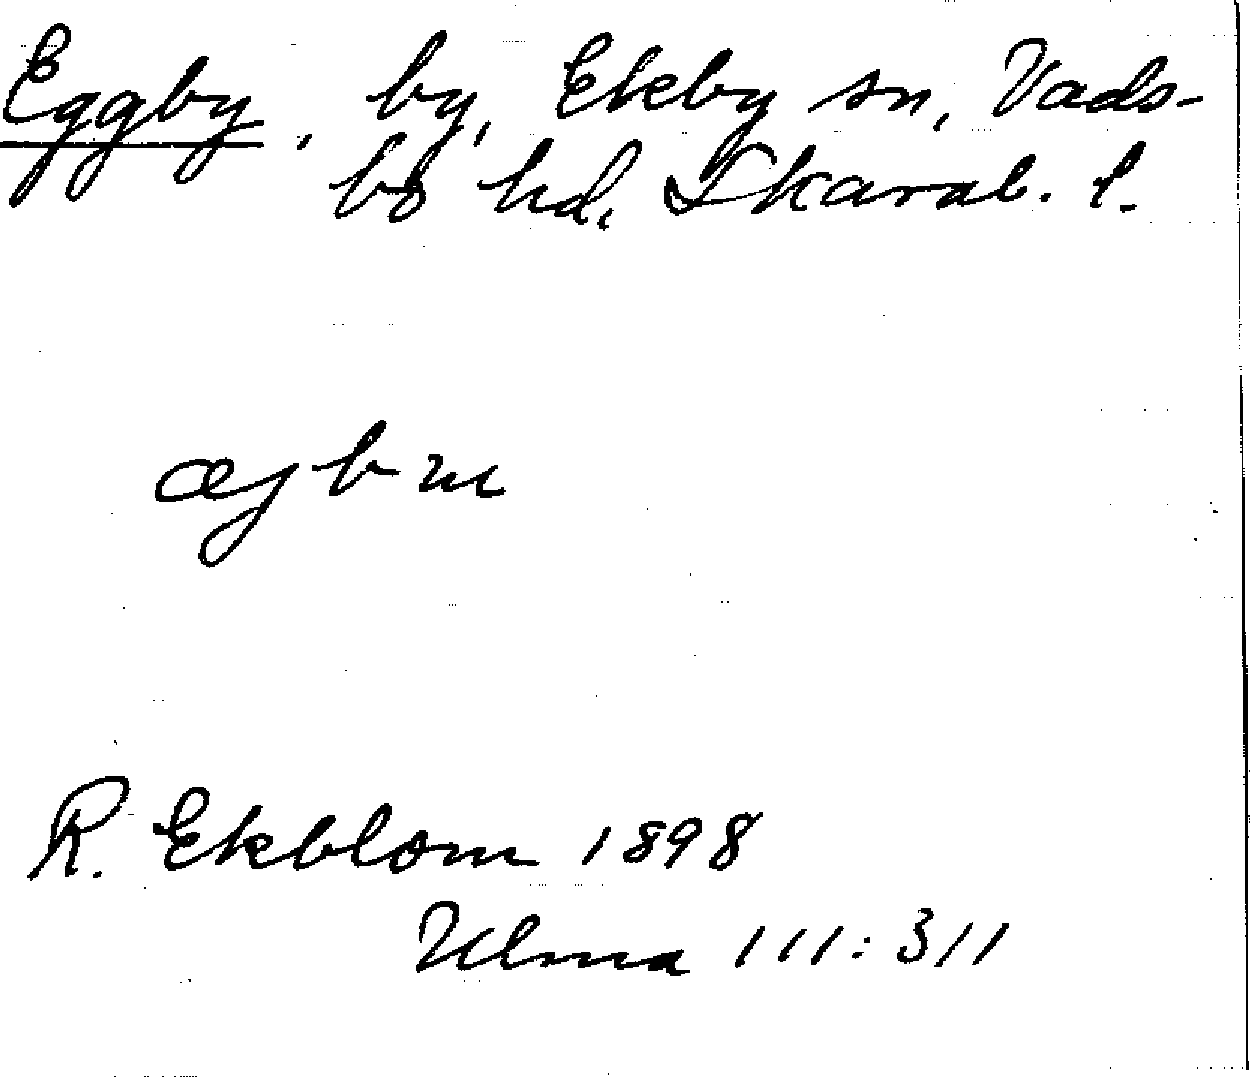 Eggby, by, Ekby sn, Vads-
bo hd, Skarab. l.
R. Ekblom 1898
Ulma 111:311